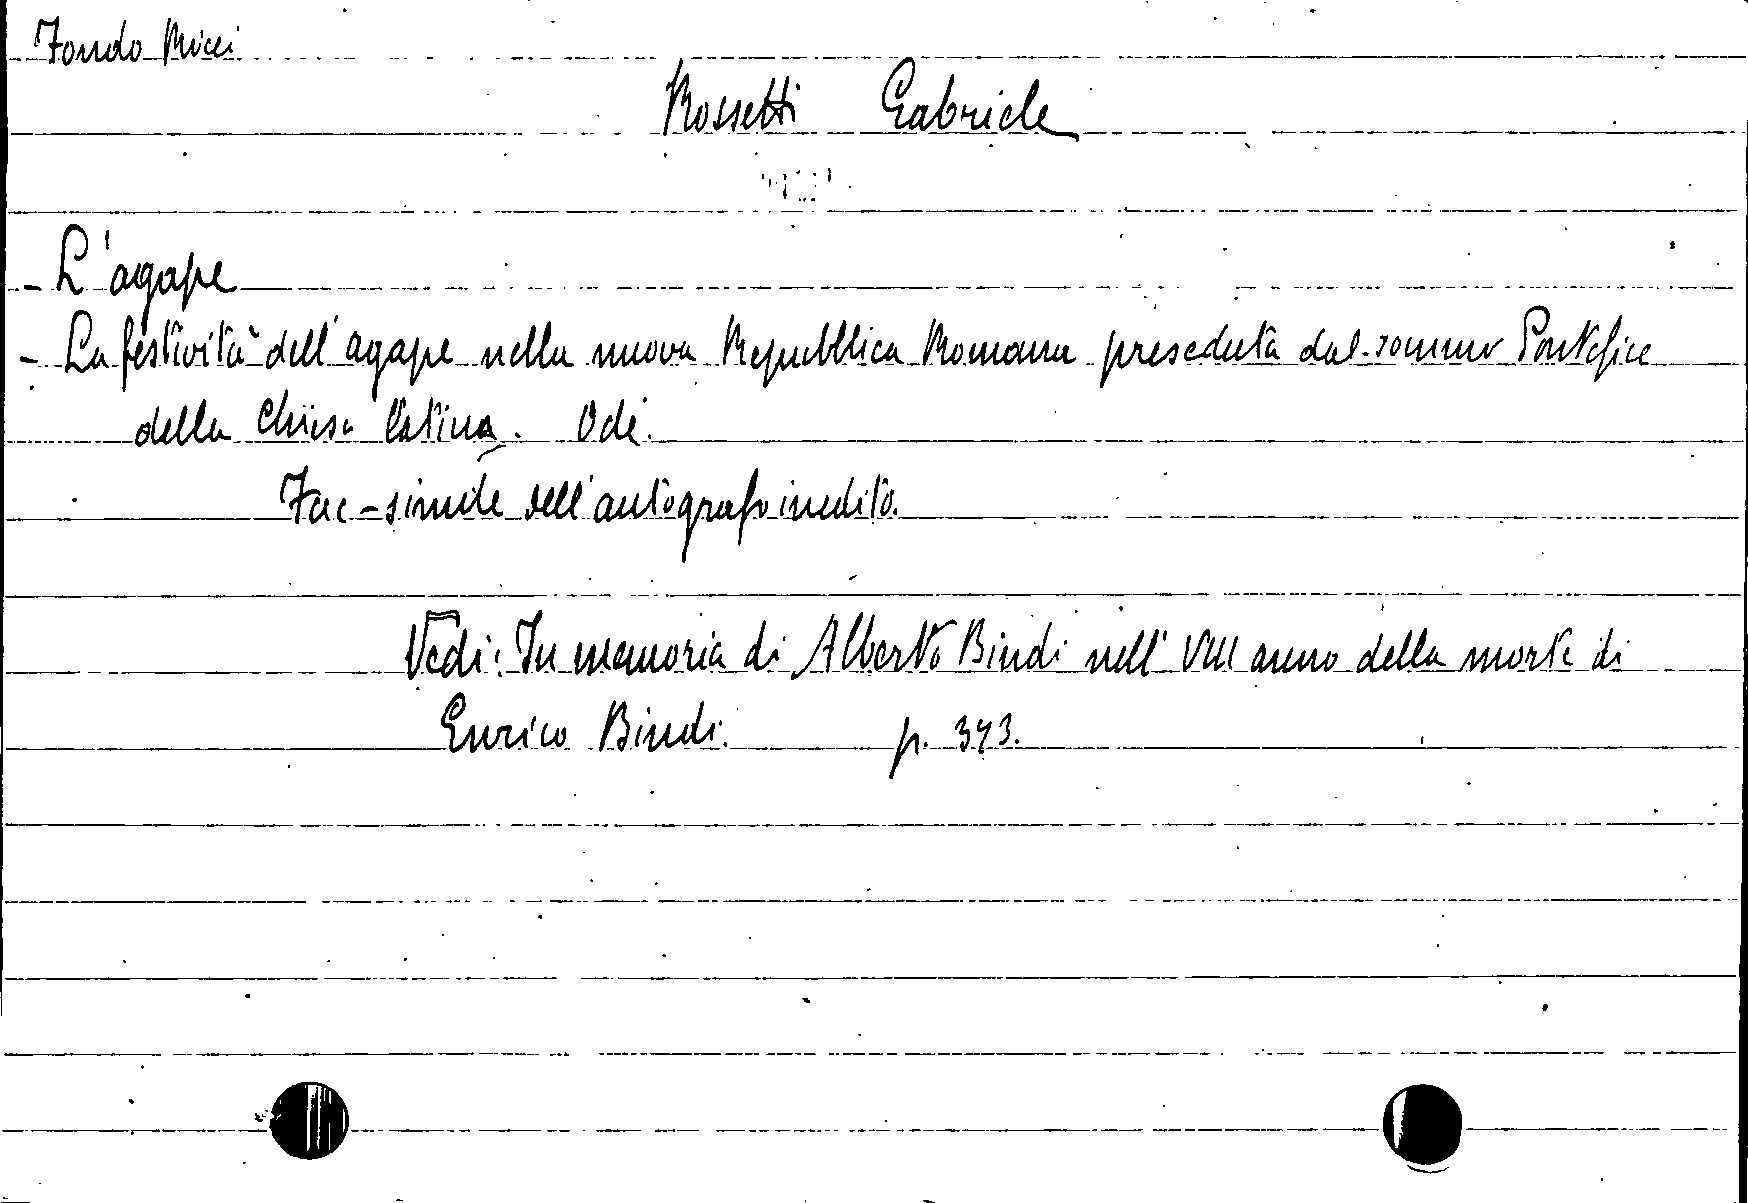 Fondo Ricci
Rossetti Gabriele
- L'agape
- La festività dell'agape nella nuova Repubblica Romana preseduta dal sommo Pontefice
della Chiesa latina. Ode.
Fac-simile dell'autografo inedito.
Vedi: In memoria di Alberto Bindi nell'VIII anno della morte di
Enrico Bindi. p. 373.